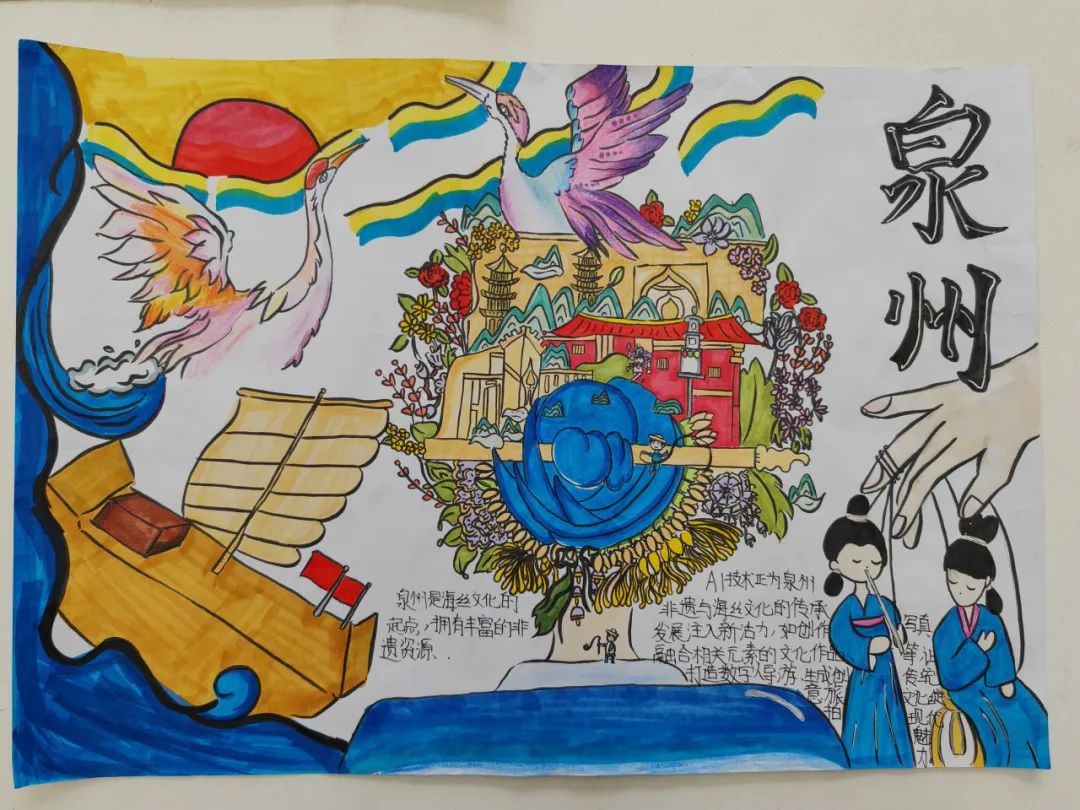 泉州
泉州是海丝文化的
起点,拥有丰富的非
遗资源、.
AI技术正为泉州
非遗与海丝文化的传承
发展注入新活力,如创作
融合相关元素的文化作品
打造数字人导游,生成创
意旅
拍
写真
等,让
传统
文化
现代
魅
力